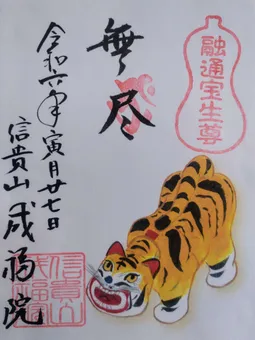 融通宝生尊
無尽
令和六年寅月廿七日
信貴山 成福院
信貴山
成福院